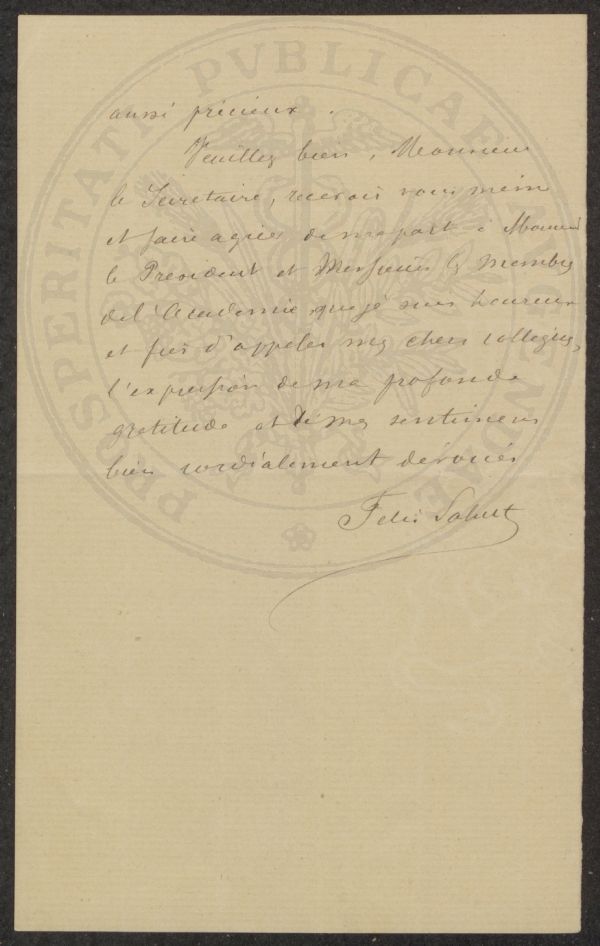 aussi précieux.
Veuillez bien, Monsieur
le Secretaire, recevoir vous meme
et faire agréer de ma part à Monsieur
le President et Messieurs les membres
de l'Academie, que je suis heureux
et fier d'appeler mes chers collegues,
l'expression de ma profonde
gratitude et de mes sentimens
bien cordialement dévoués
Felix Sahut
PROSPERITATI PVBLICAE AVGENDAE